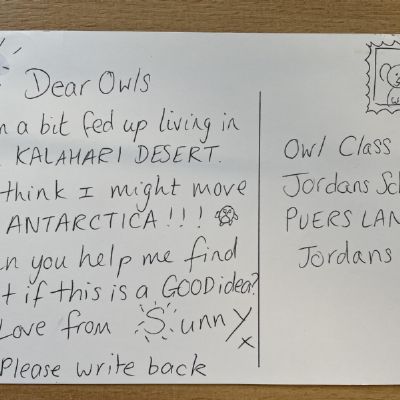 Dear Owls
a bit fed up living in
KALAHARI DESERT.
think I might move
ANTARCTICA!!!
you help me find
if this is a GOOD idea?
Love from Sunny x
Please write back
Owl Class
Jordans
PUERS
Jordans